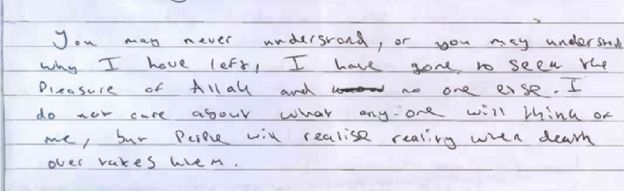 You may never understand, or you may understand
why I have left, I have gone to seek the
Pleasure of Allah and no one else. I
do not care about what any-one will think of
me, but People will realise reality when death
over takes them.